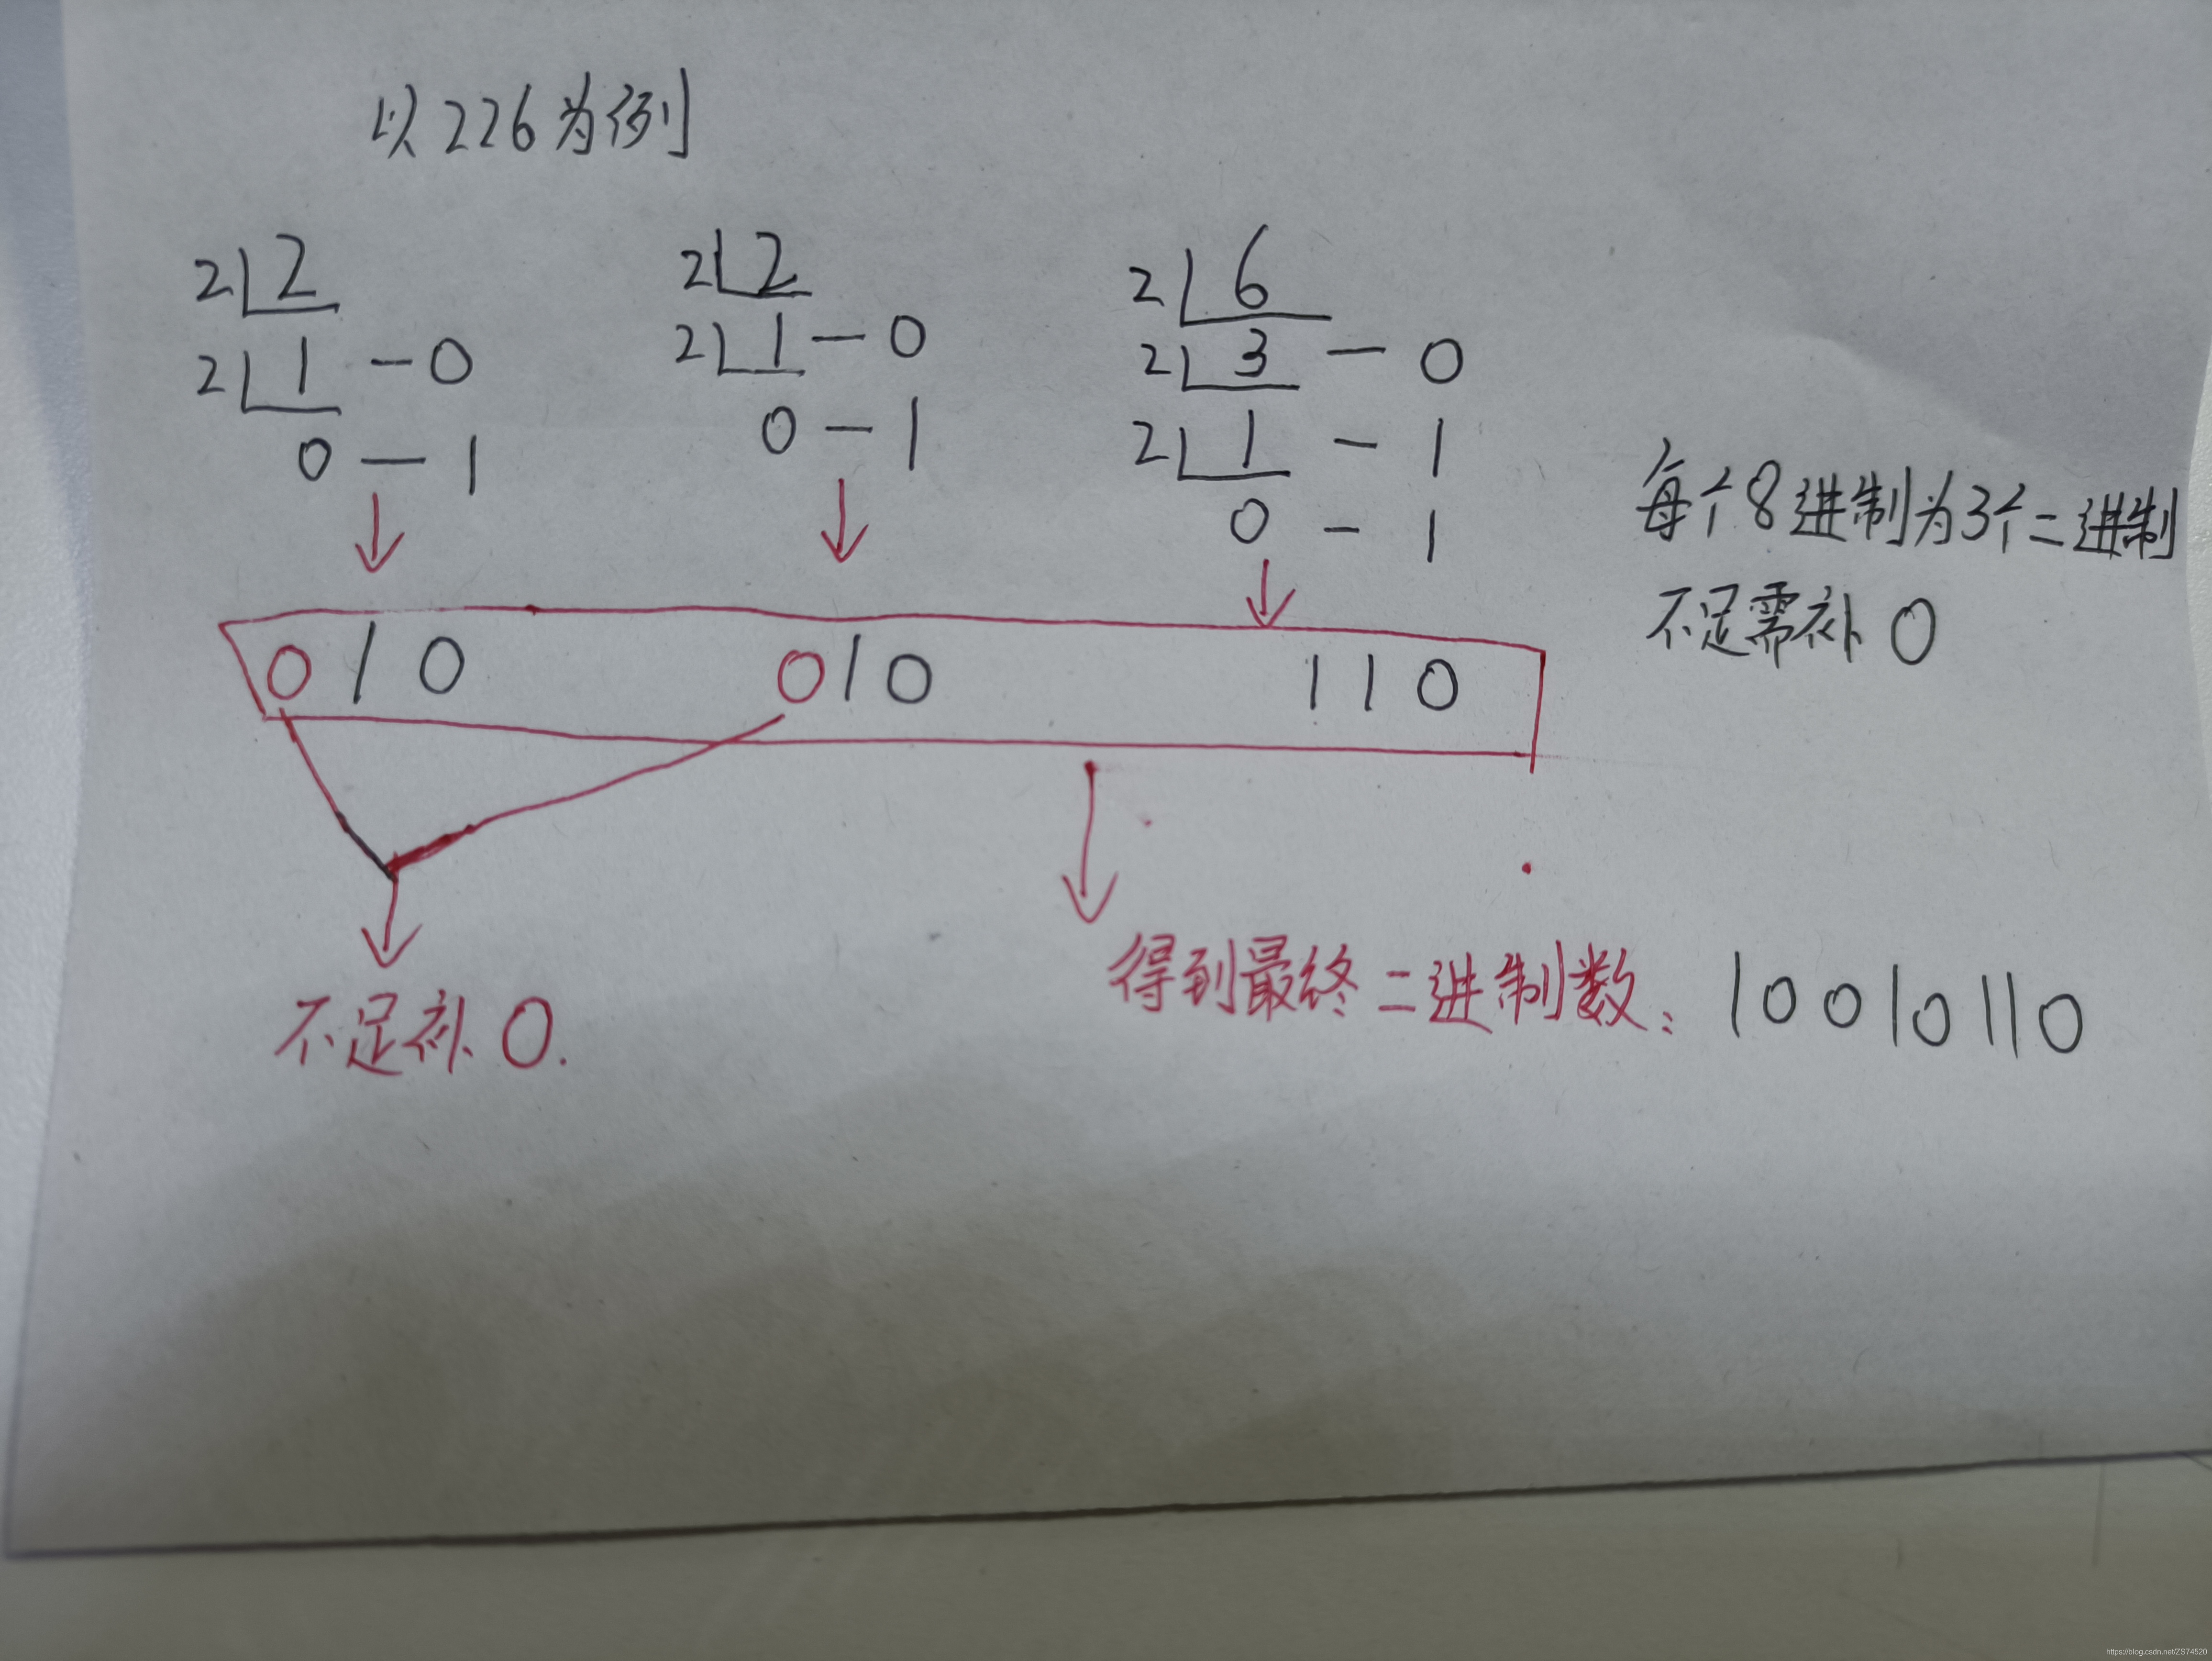 以226为例
2 2 2 2 2 6
2 1 - 0 2 1 - 0 2 3 - 0
0 - 1 0 - 1 2 1 - 1
0 - 1
每个8进制为3个二进制
不足需补0
010 010 110
不足补0.
得到最终二进制数: 10010110
https://blog.csdn.net/ZS74520